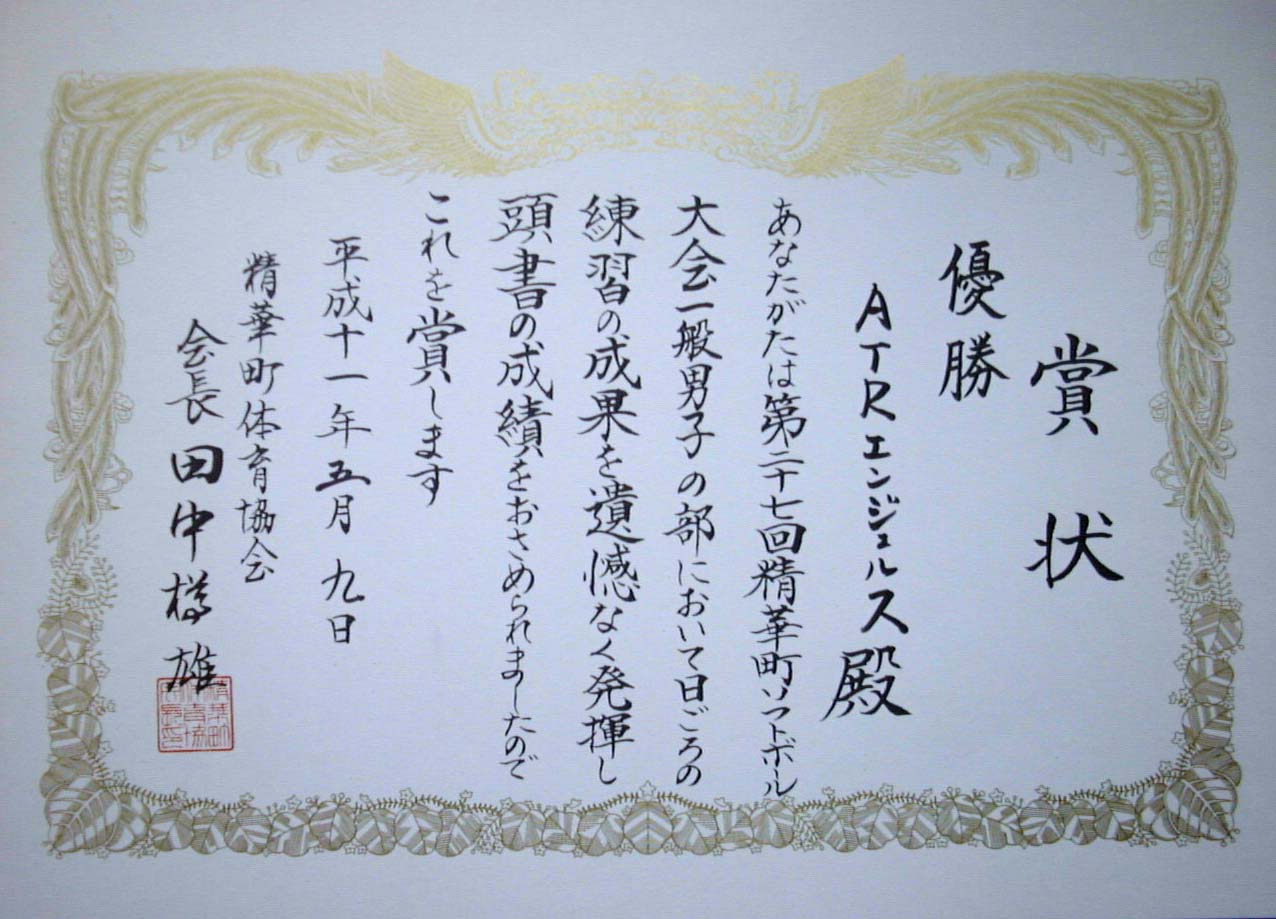 賞状
優勝
ATRエンジェルス殿
あなたがたは第二十七回精華町ソフトボール
大会一般男子の部において日ごろの
練習の成果を遺憾なく発揮し
頭書の成績をおさめられましたので
これを賞します
平成十一年五月九日
精華町体育協会
会長 田中樽雄